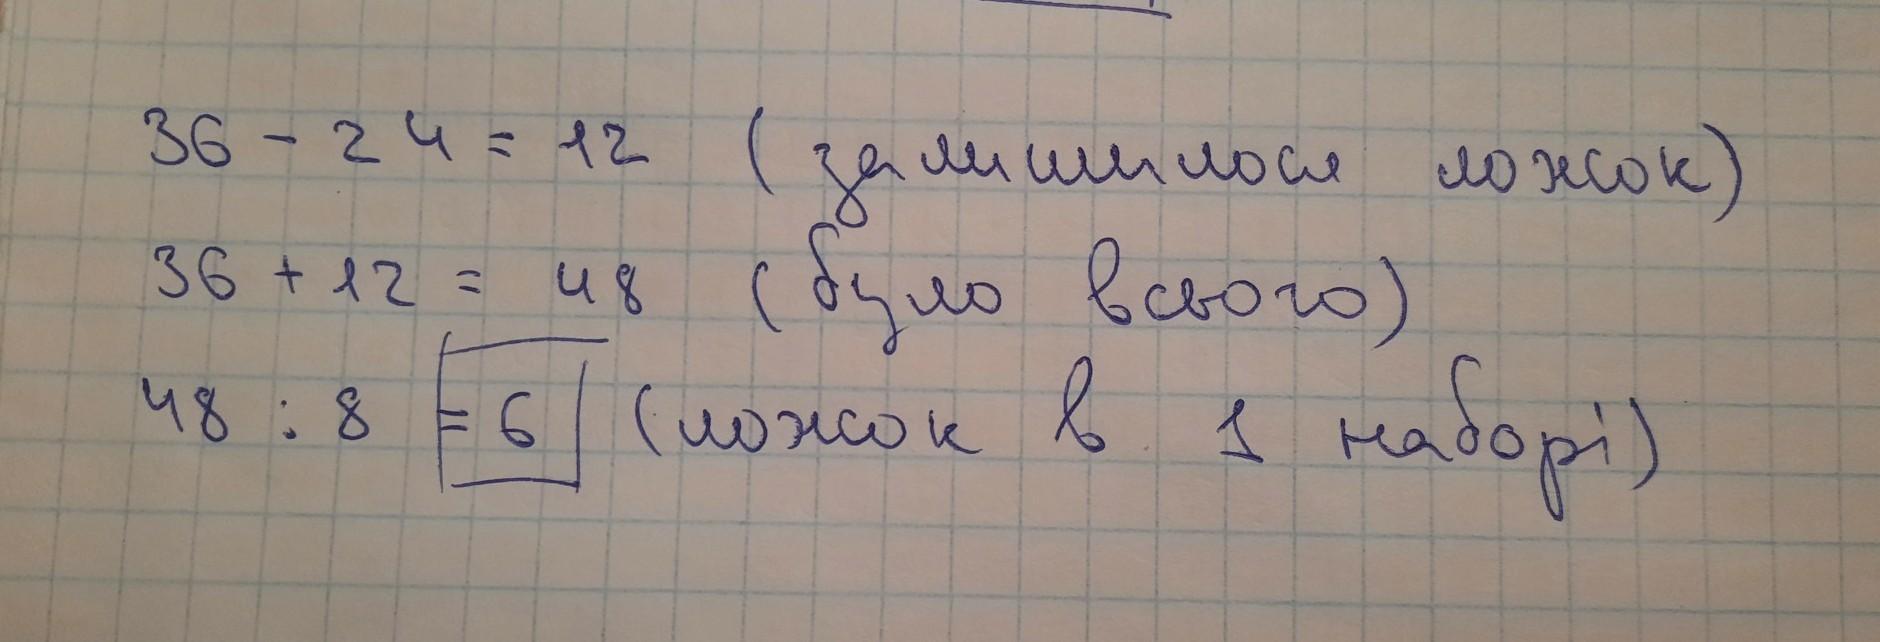 36 - 24 = 12 (залишилося ложок)
36 + 12 = 48 (було всього)
48 : 8 = 6 (ложок в 1 наборі)